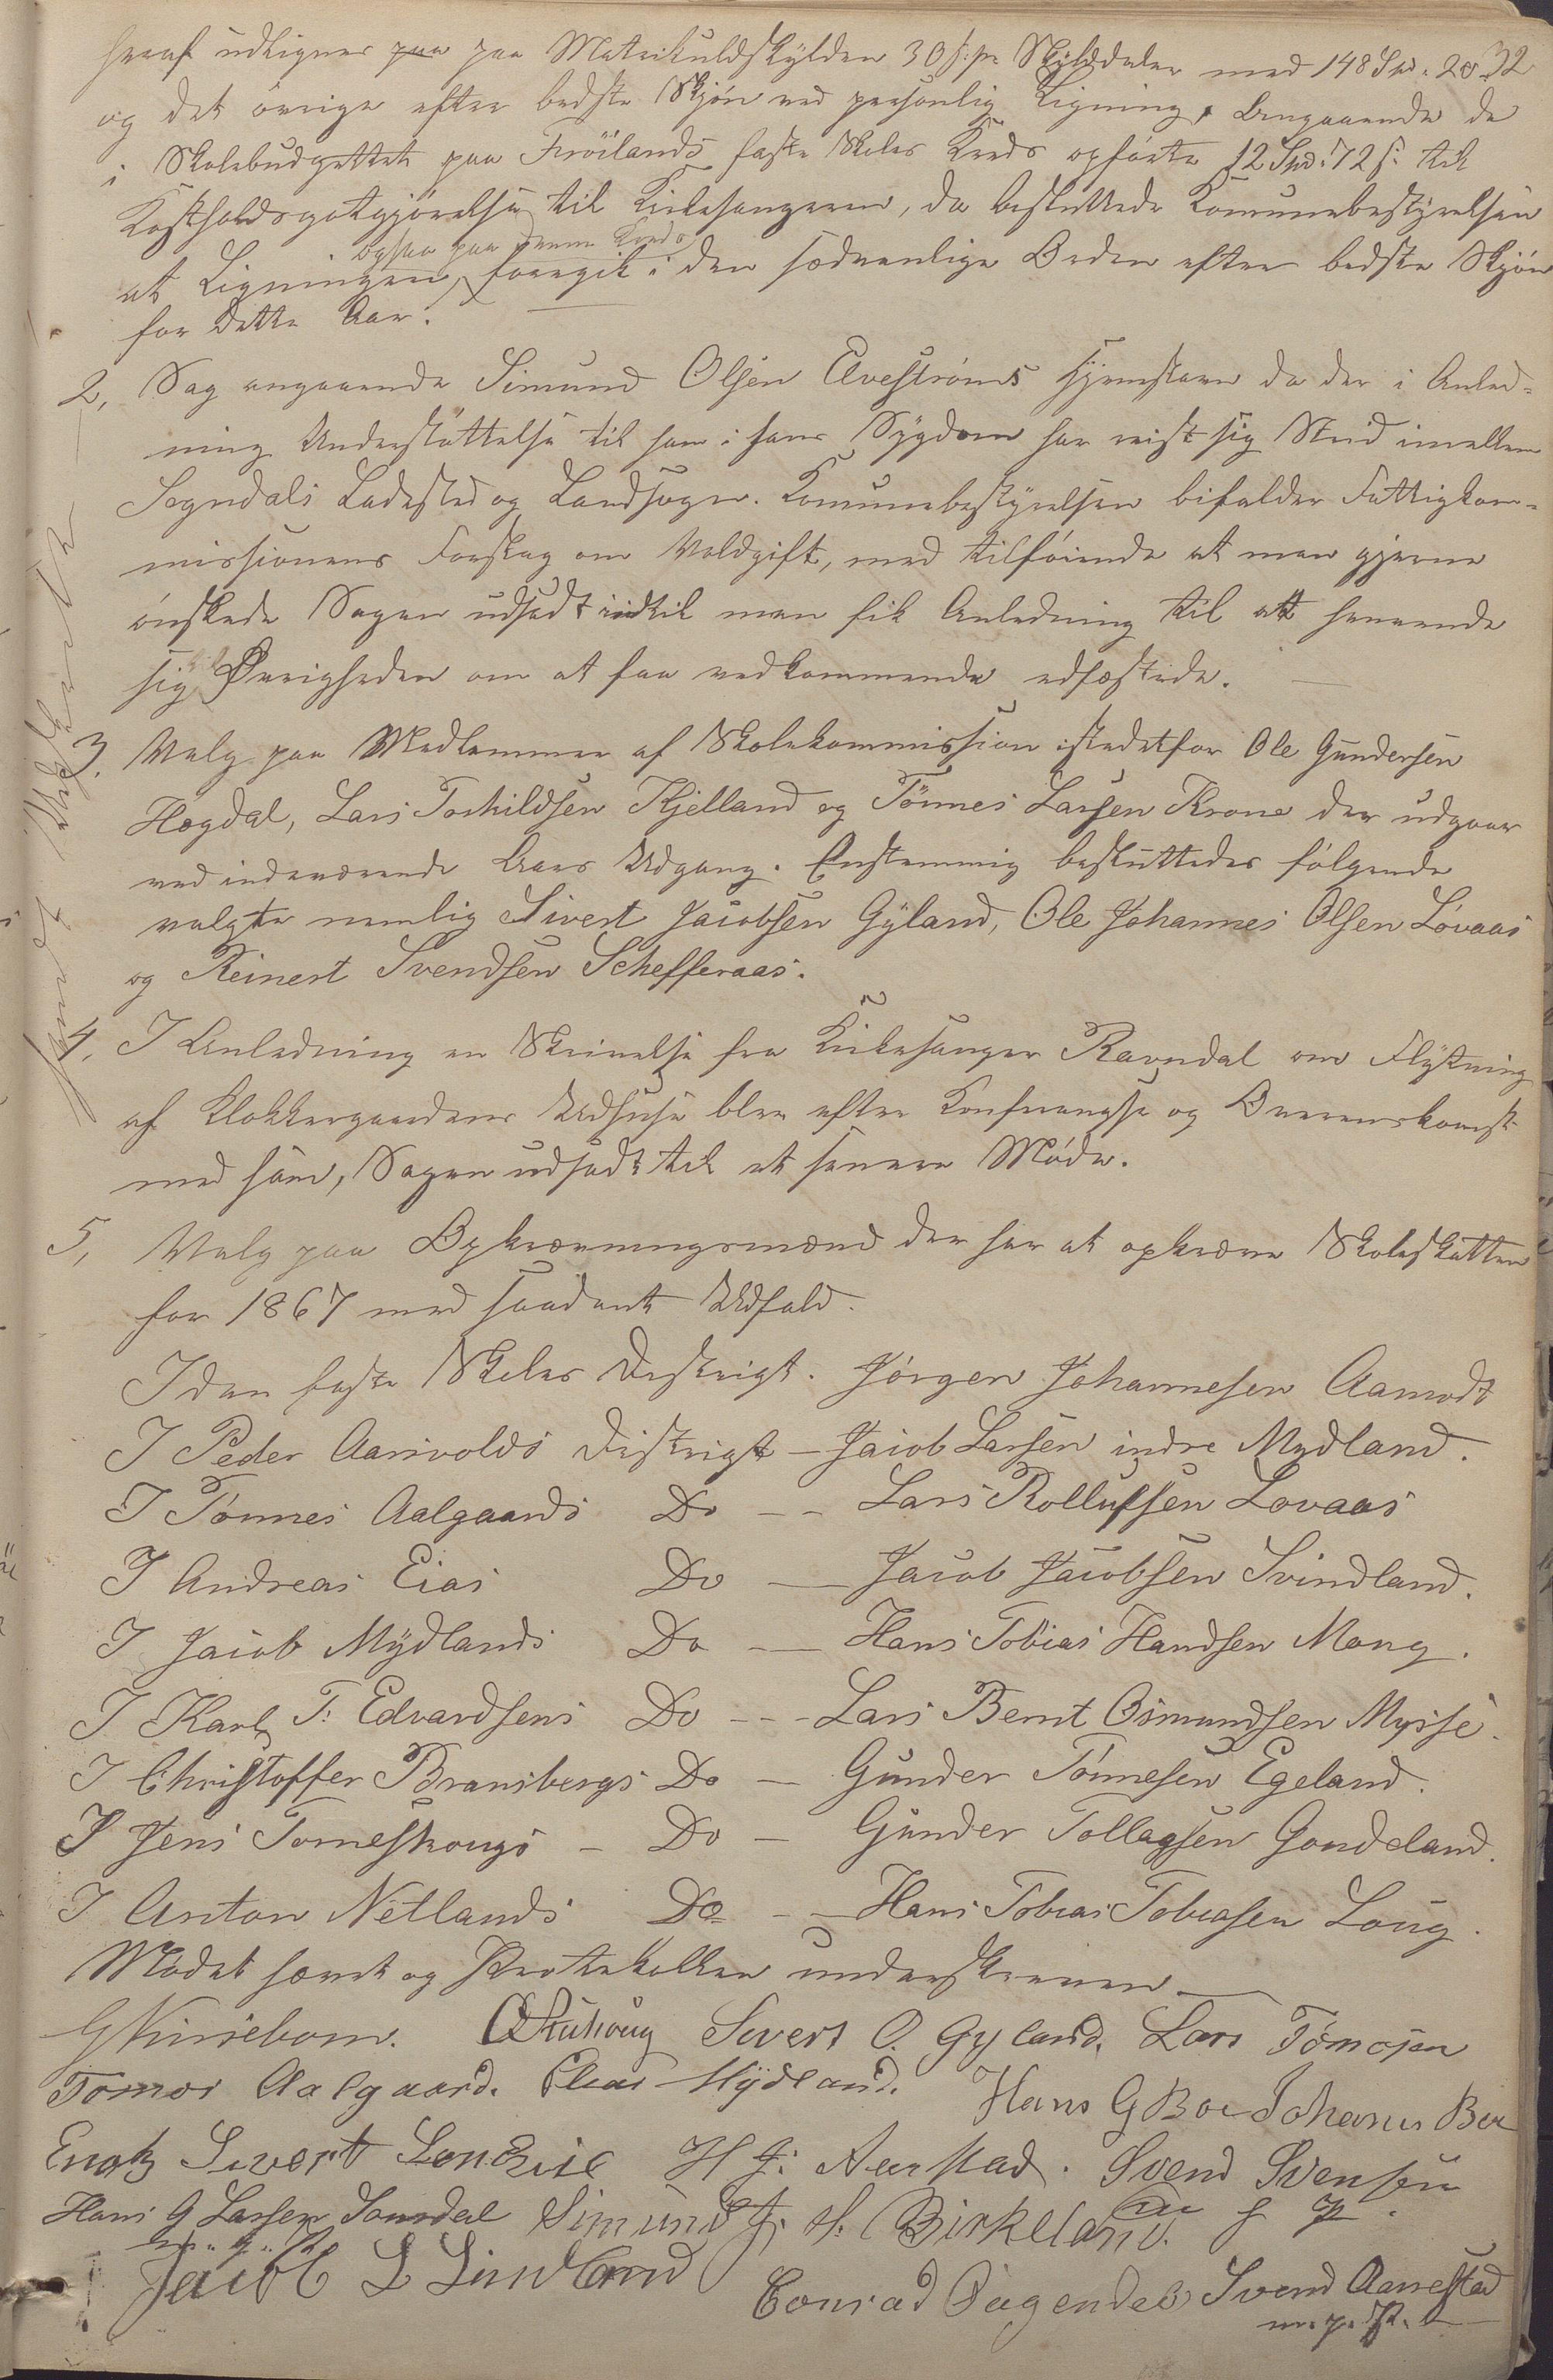 heraf udlignes paa paa Matrikuldskylden 30 s: pr Skylddaler med 148 Spd. 20 32
og det øvrige efter bedste Skjøn ved personlig Ligning. Angaaende de
i Skolebudgettet paa Frøilands faste Skoles Kreds opførte 12 Spd. 72 s. til
Kostholdsgodtgjørelse til Kirkesangeren, da besluttede Komunebestyrelsen
ogsaa paa denne Kreds
at Ligningen foregik i den sædvanlige Orden efter bedste Skjøn
for dette Aar.
2, Sag angaaende Simund Olsen Elvestrøms Hjemstavn da der i Anled-
ning Understøttelse til ham i hans Sygdom har reist sig Strid imellem
Sogndals Ladested og Landsogn. Komunebestyrelsen bifalder Fattigkom-
missionens Forslag om Voldgift, med tilføiende at man gjerne
ønskede Sagen udsadt indtil man fik Anledning til at henvende
sig til Øvrigheden om at faa vedkommende edfæstede.
3. Valg paa Medlemmer af Skolekommission istedetfor Ole Gundersen
Høgdal, Lars Torkildsen Kjelland og Tønnes Larsen Krone der udgaar
ved indeværende Aars Udgang. Enstemmig besluttedes følgende
valgte nemlig Sivert Jacobsen Gyland, Ole Johannes Olsen Løvaas
og Reinert Svendsen Schefferaas.
4, I Anledning en Skrivelse fra Kirkesanger Ravndal om Flytning
af Klokkergaardens Udhuse blev efter Konferangse og Overenskomst
med ham, Sagen udsadt til et senere Møde.
5, Valg paa Opkrævningsmænd der har at opkræve Skoleskatten
for 1867 med saadant Udfald.
I den faste Skoles Distrigt. Jørgen Johannesen Aamodt
I Peder Aarivolds Distrigt - Jacob Larsen indre Mydland.
I Tønnes Aalgaards Do -- Lars Rollufsen Lovaas
I Andreas Eias Do — Jacob Jacobsen Svindland.
I Jacob Mydlands Do -— Hans Tobias Handsen Mong.
I Karl T. Edvardsens Do --- Lars Bernt Osmundsen Mysse.
I Christoffer Bransbergs Do — Gunder Tønnesen Egeland.
I Jens Torneskougs - Do — Gunder Tollagsen Goudeland.
I Anton Netlands Do -— Hans Tobias Tobiasen Loug.
Mødet hævet og Protokollen underskreven
Sivert O. Gyland. Lars Tomasen
Tomas Aalgaard. Elias Mydland. Hans G Boe Johanes Boe
Sivert H J. Aarstad. Svend Svensen
Hans G Larsen Simund J. H. Birkeland.
m. f. P.
Jacob L Lindland Conrad Svend Aarrestad
m. p. P.